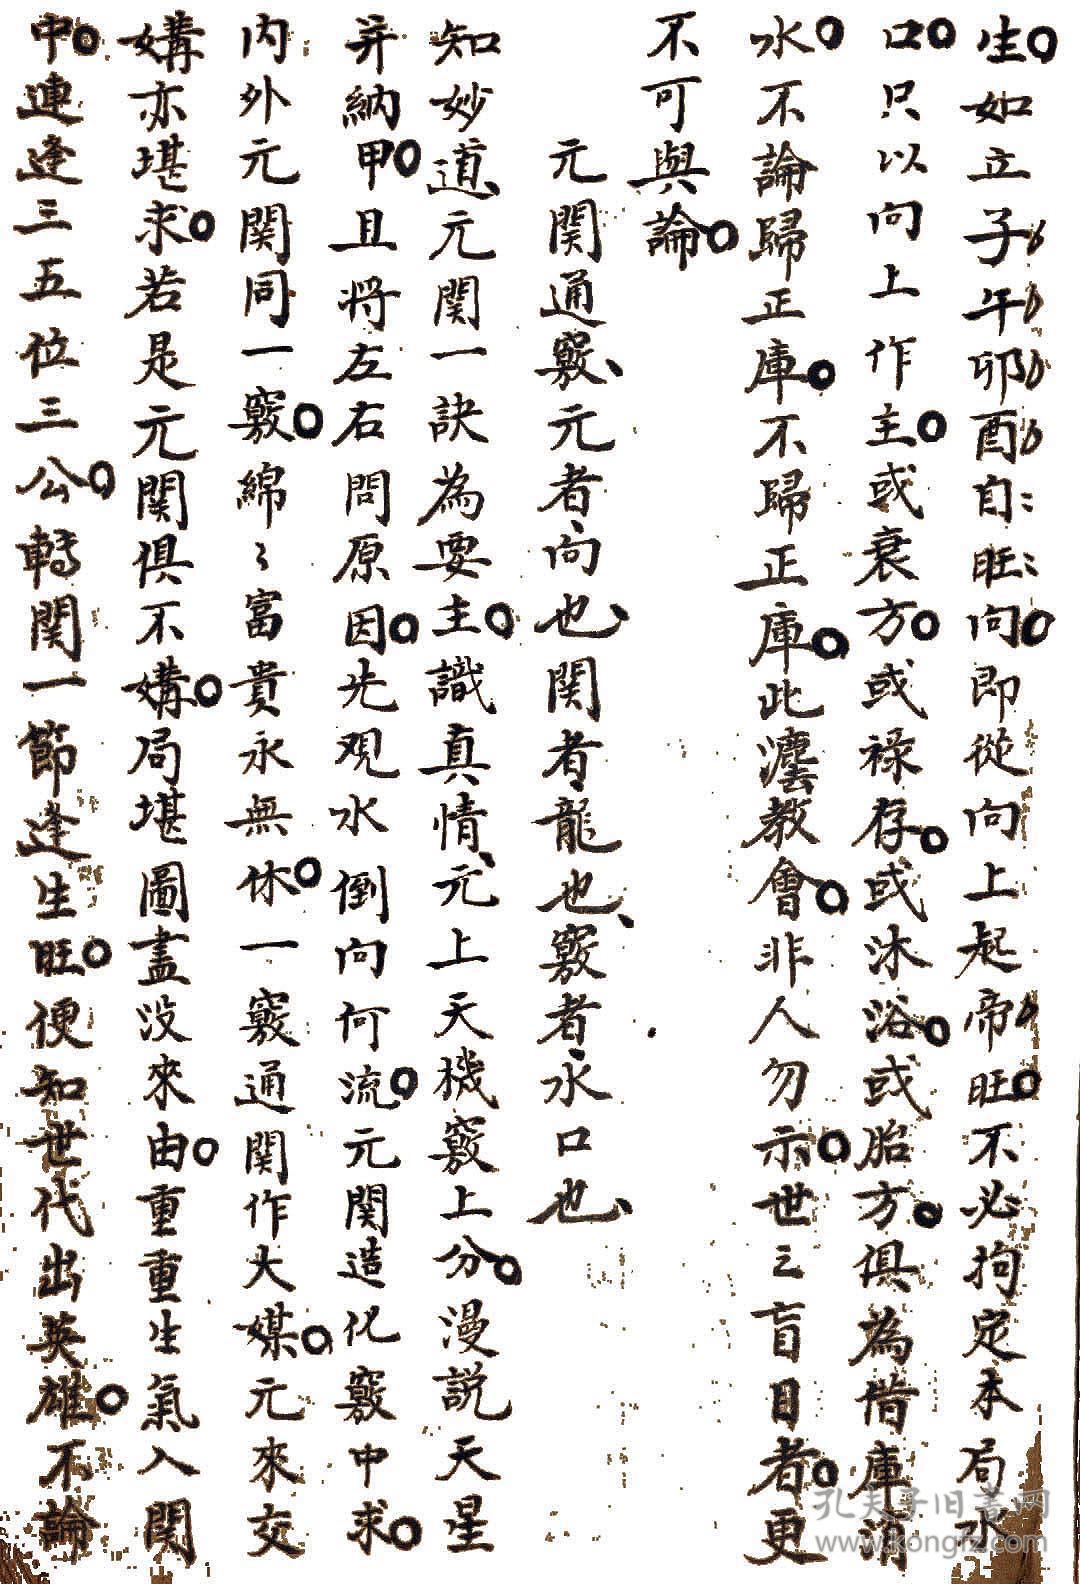 生如立子午卯酉自旺向即從向上起帝旺不必拘定本局水
口只以向上作主或衰方或祿存或沐浴或胎方俱為借庫消
水不論歸正庫不歸正庫此教會非人勿示世之盲目者更
不可與論
元関通竅元者向也関者龍也竅者水口也
知妙道元関一訣為要主識真情元上天機竅上分漫説天星
并納甲且将左右問原因先观水倒向何流元関造化竅中求
内外元関同一竅綿〻富貴永無休一竅通関作大媒元來交
媾亦堪求若是元関俱不媾局堪圖畫没來由重重生氣入関
中連逢三五位三公轉関一節逢生旺便知世代出英雄不論
孔夫子旧書网
www.kongfz.com